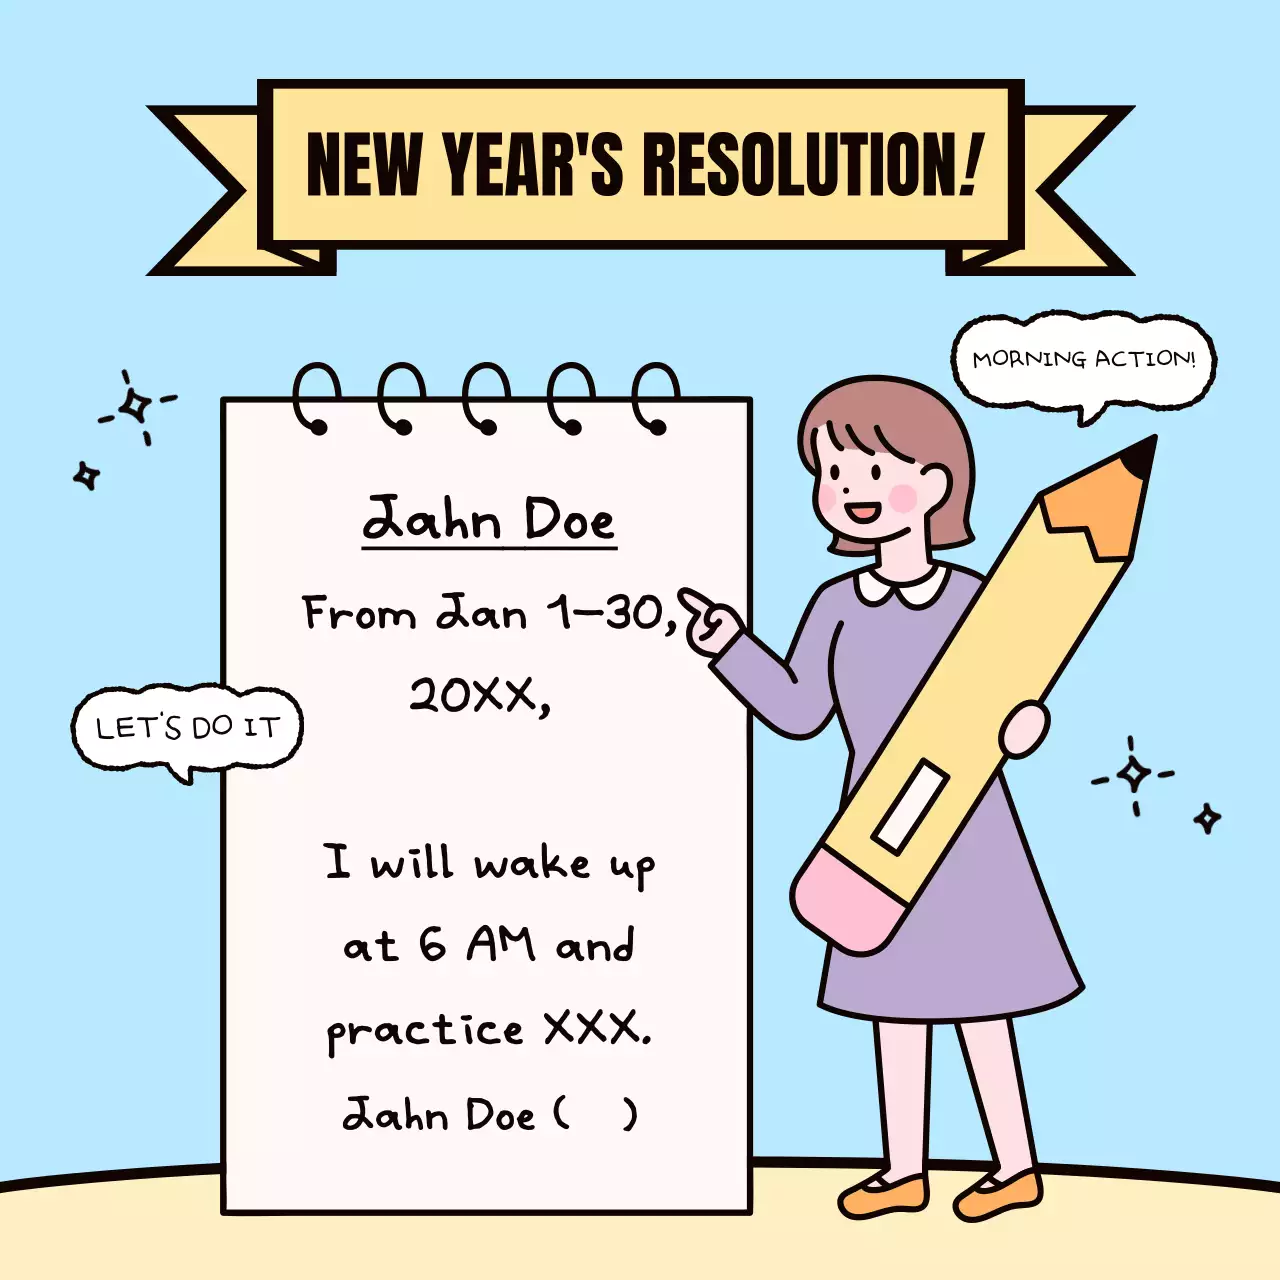 NEW YEAR'S RESOLUTION!
MORNING ACTION!
Jahn Doe
From Jan 1–30,
20XX,
LET'S DO IT
I will wake up
at 6 AM and
practice XXX.
Jahn Doe (   )